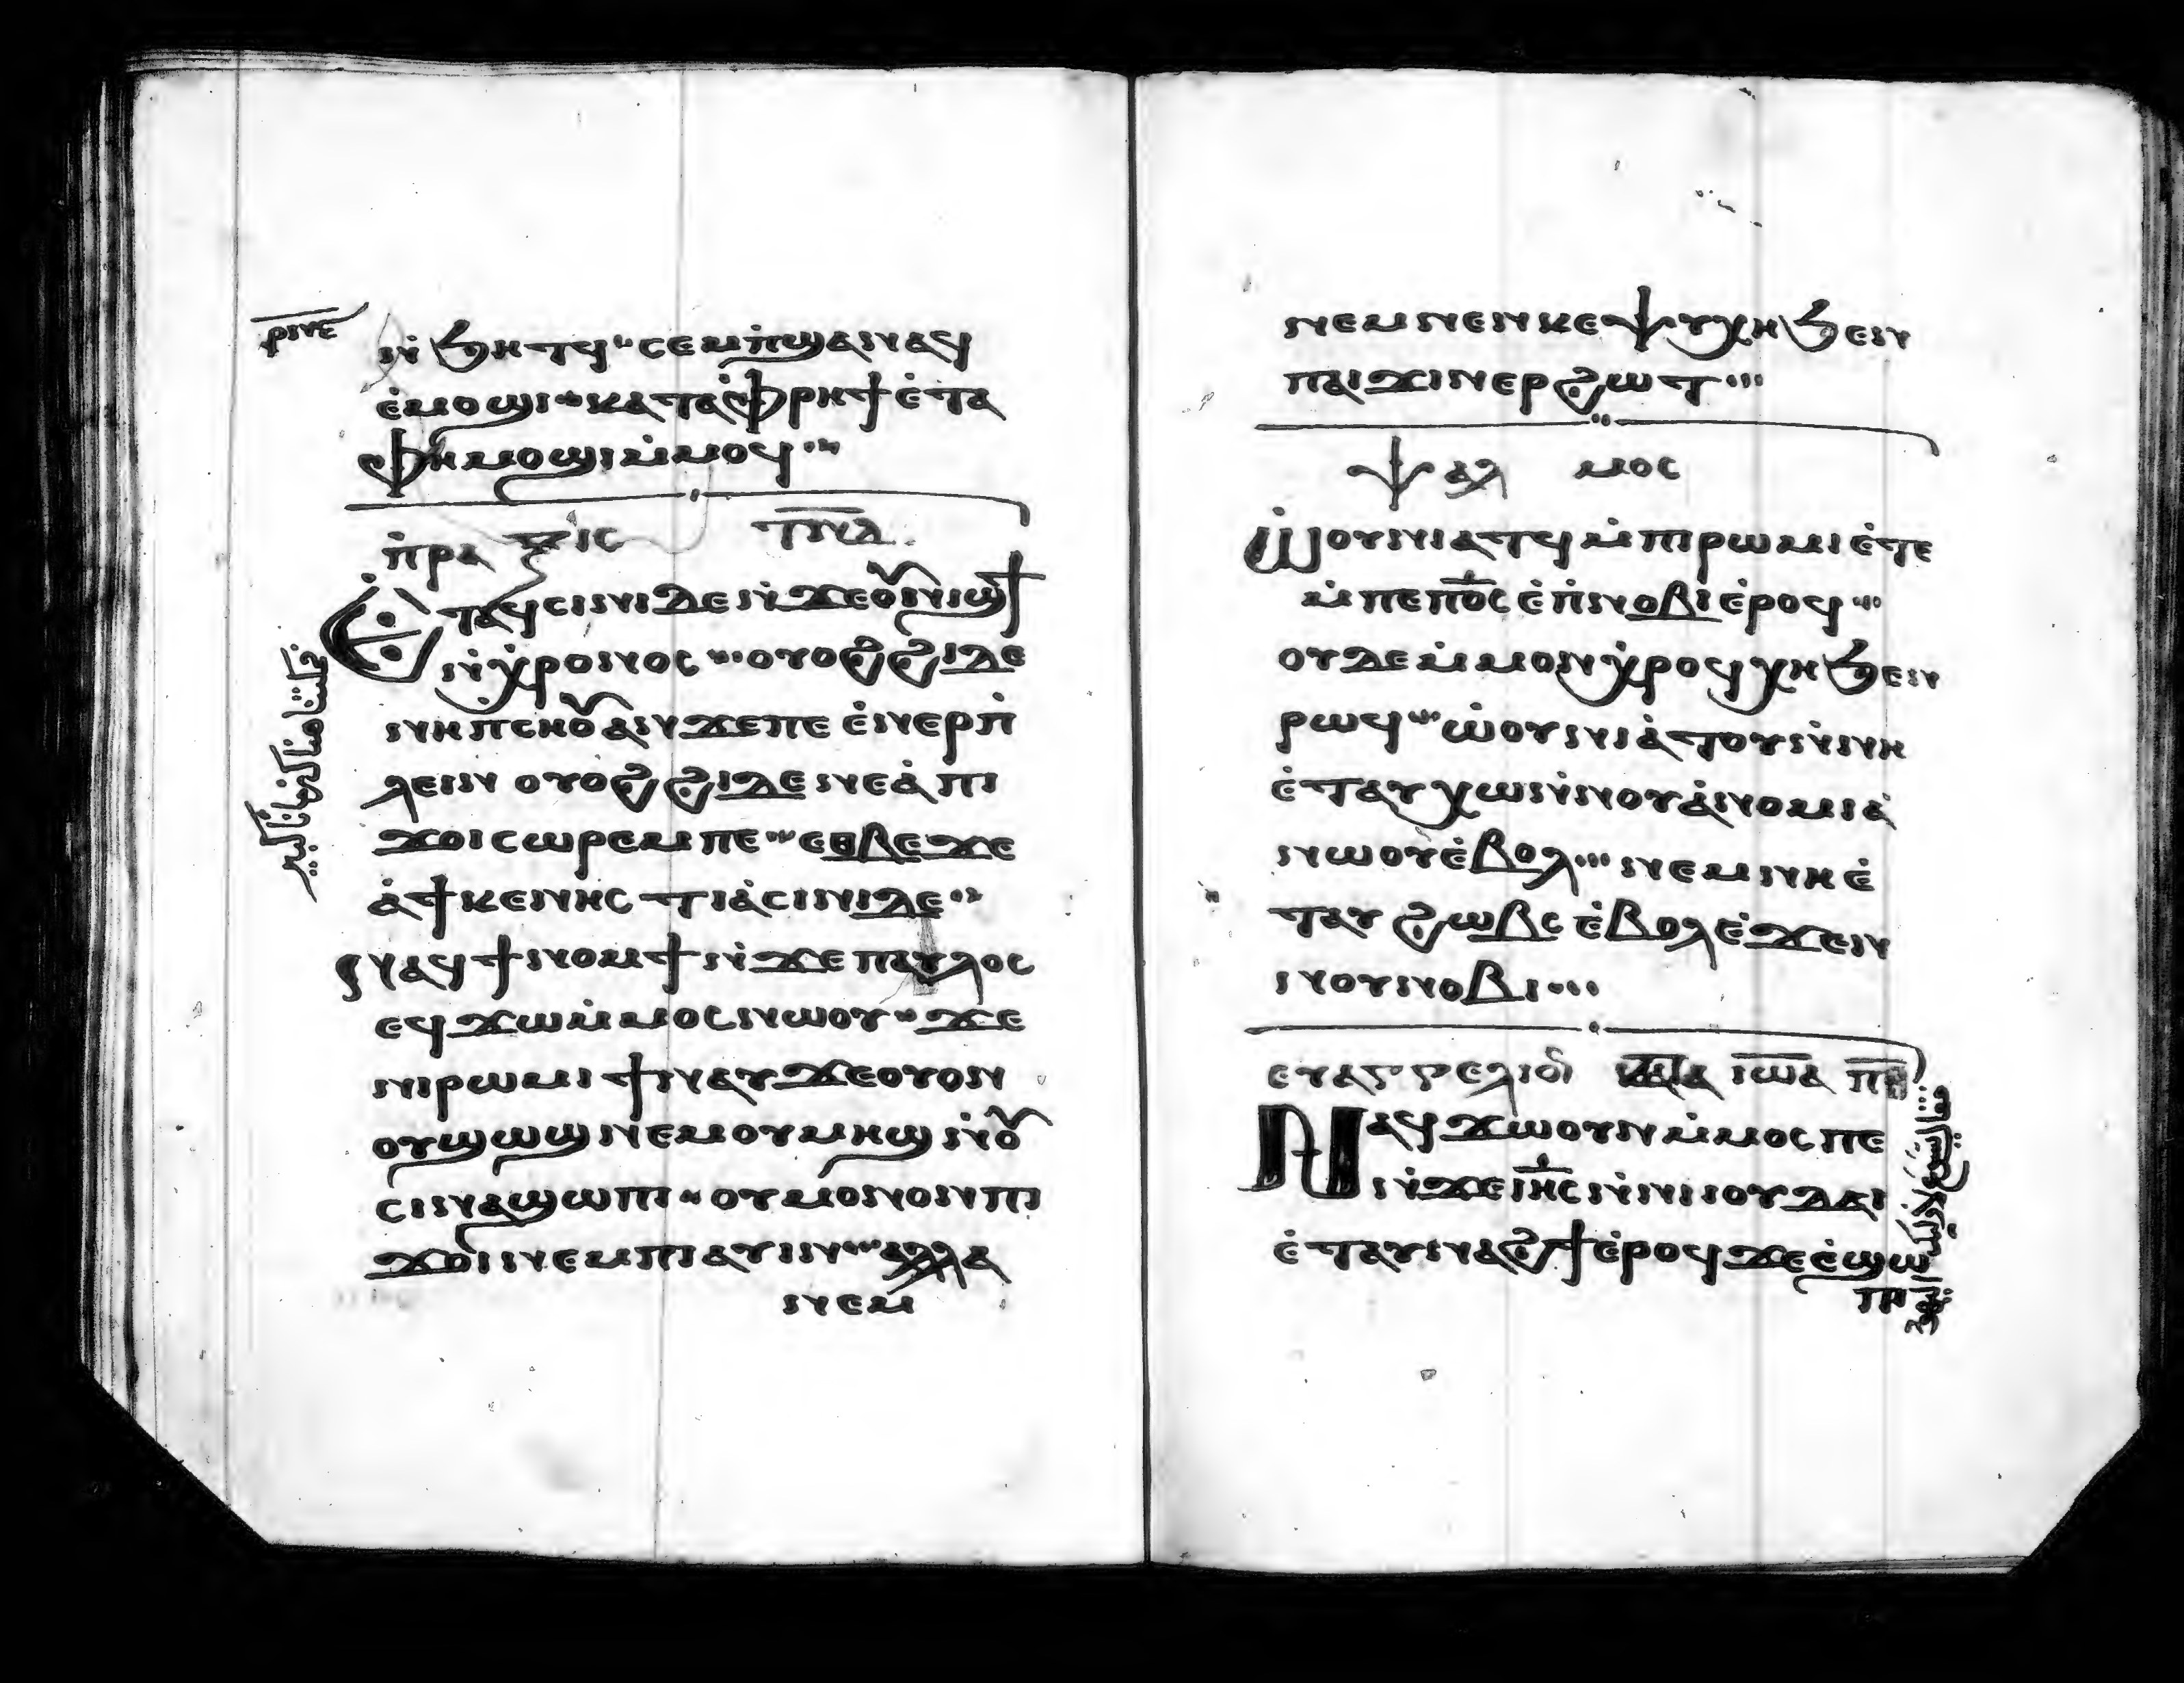 ⲣⲛⲉ
ⲛ̇ϧⲏⲧϥ ⲥⲉⲙⲡ̇ϣⲁⲛⲁϥ
ⲉ̇ⲙⲟϣⲓ ⲕⲁⲧⲁⲫⲣⲏϯ ⲉ̇ⲧⲁ
ⲫⲏⲙⲟϣⲓⲙ̇ⲙⲟϥ
ⲡ̇ⲣⲁⲝⲓⲥ
Ⲉ̇ⲧⲁϥⲥⲓⲛⲓⲇⲉⲛ̇ϫⲉⲟⲩⲛⲓϣϯ
ⲛ̇ⲭ̇ⲣⲟⲛⲟⲥ ⲟⲩⲟϩϩⲓⲇⲉ
ⲛⲏⲡⲉⲛⲟⲩⲁⲛϫⲉⲡⲉ ⲉ̇ⲛⲉⲣⲡ̇
ⲗⲉⲓⲛ ⲟⲩⲟϩϩⲓⲇⲉⲛⲉⲁ̇ⲡⲓ
ϫⲟⲓⲥⲱⲣⲉⲙⲡⲉ ⲉⲑⲃⲉϫⲉ
ⲁ̇ϯⲕⲉⲛⲏⲥⲧⲓⲁ̇ⲥⲓⲛⲓⲇⲉ
ⲛⲁϥϯⲛⲟⲙϯⲛ̇ϫⲉⲡⲁⲩⲗⲟⲥ
ⲉϥϫⲱⲙ̇ⲙⲟⲥⲛⲱⲟⲩ ϫⲉ
ⲛⲓⲣⲱⲙⲓϯⲛⲁⲩϫⲉⲟⲩⲟⲛ
ⲟⲩϣⲱϣⲛⲉⲙⲟⲩⲙⲏϣⲛ̇ⲟⲩ
ⲥⲓⲛⲁϣⲱⲡⲓ ⲟⲩⲙⲟⲛⲟⲛⲡⲓ
ϫⲟⲓⲛⲉⲙⲡⲓⲁⲩⲓⲛ ⲁⲗⲗⲁ
ⲛⲉⲙ
ⲛⲉⲙⲛⲉⲛⲕⲉⲯⲩⲭⲏϧⲉⲛ
ⲡⲁⲓϫⲓⲛⲉⲣϩⲱⲧ
ⲯⲁⲗⲙⲟⲥ
Ⲱ̇ⲟⲩⲛⲓⲁⲧϥⲙ̇ⲡⲓⲣⲱⲙⲓⲉ̇ⲧⲉ
ⲙ̇ⲡⲉⲡϭⲥ ⲉ̇ⲡⲛⲟⲃⲓⲉ̇ⲣⲟϥ
ⲟⲩⲇⲉⲙ̇ⲙⲟⲛⲭ̇ⲣⲟϥⲭⲏϧⲉⲛ
ⲣⲱϥ ⲱ̇ⲟⲩⲛⲓⲁ̇ⲧⲟⲩⲛ̇ⲛⲏ
ⲉ̇ⲧⲁⲩⲭⲱⲛ̇ⲛⲟⲩⲁ̇ⲛⲟⲙⲓⲁ̇
ⲛⲱⲟⲩⲉ̇ⲃⲟⲗ ⲛⲉⲙⲛⲏⲉ̇
ⲧⲁⲩϩⲱⲃⲥ ⲉ̇ⲃⲟⲗⲉ̇ϫⲉⲛ
ⲛⲟⲩⲛⲟⲃⲓ
ⲉⲩⲁⲅⲅⲉⲗⲓⲟ ⲕⲁⲧⲁ ⲓⲱⲁ
Ⲛⲁϥϫⲱⲟⲩⲛⲙ̇ⲙⲟⲥⲡⲉ
ⲛ̇ϫⲉⲓⲏⲥⲛ̇ⲛⲓⲓⲟⲩⲇⲁⲓ
ⲉ̇ⲧⲁⲩⲛⲁϩϯⲉ̇ⲣⲟϥϫⲉⲉ̇ϣⲱ
ⲡ